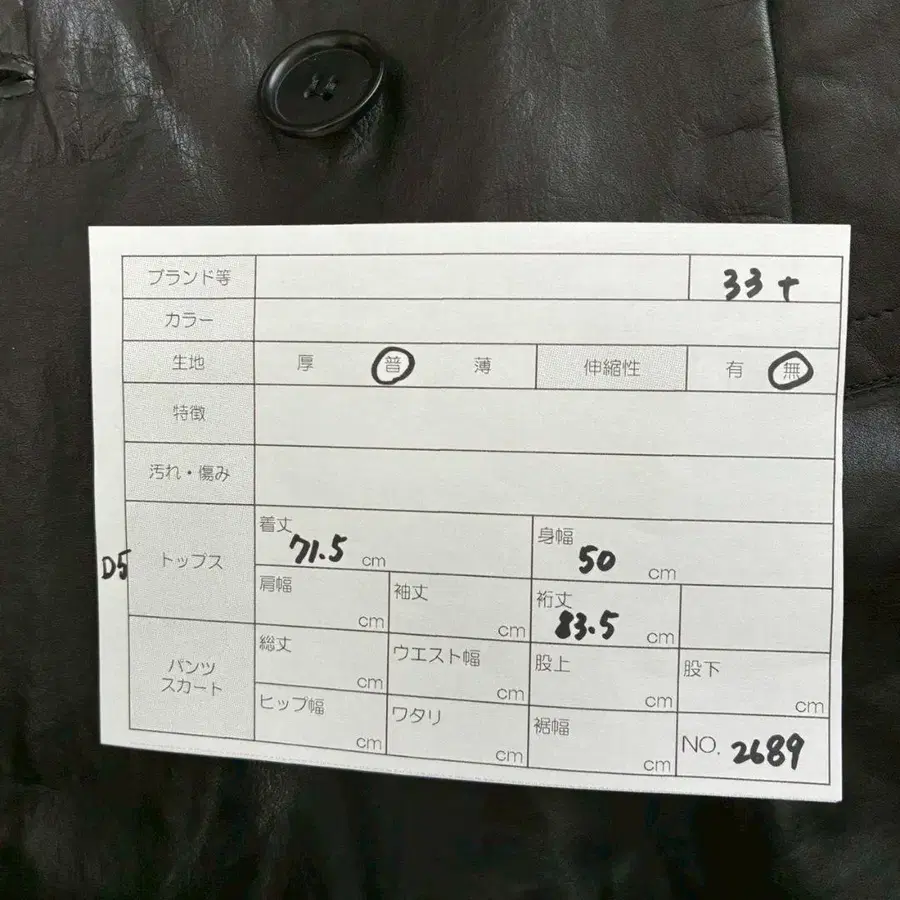 ブランド等 33+
カラー
生地 厚 普 薄 伸縮性 有 無
特徴
汚れ・傷み
D5 トップス
着丈 71.5 cm 身幅 50 cm
肩幅 cm 袖丈 cm 裄丈 83.5 cm
パンツ
スカート
総丈 cm ウエスト幅 cm 股上 cm 股下 cm
ヒップ幅 cm ワタリ cm 裾幅 cm NO. 2689